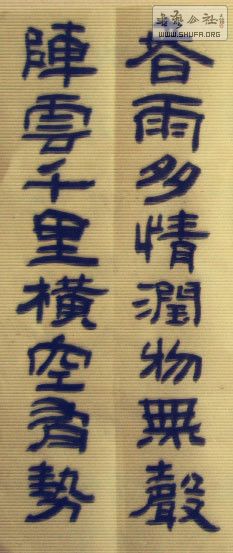 春雨多情潤物無聲
陣雲千里橫空有勢
书艺公社
WWW.SHUFA.ORG